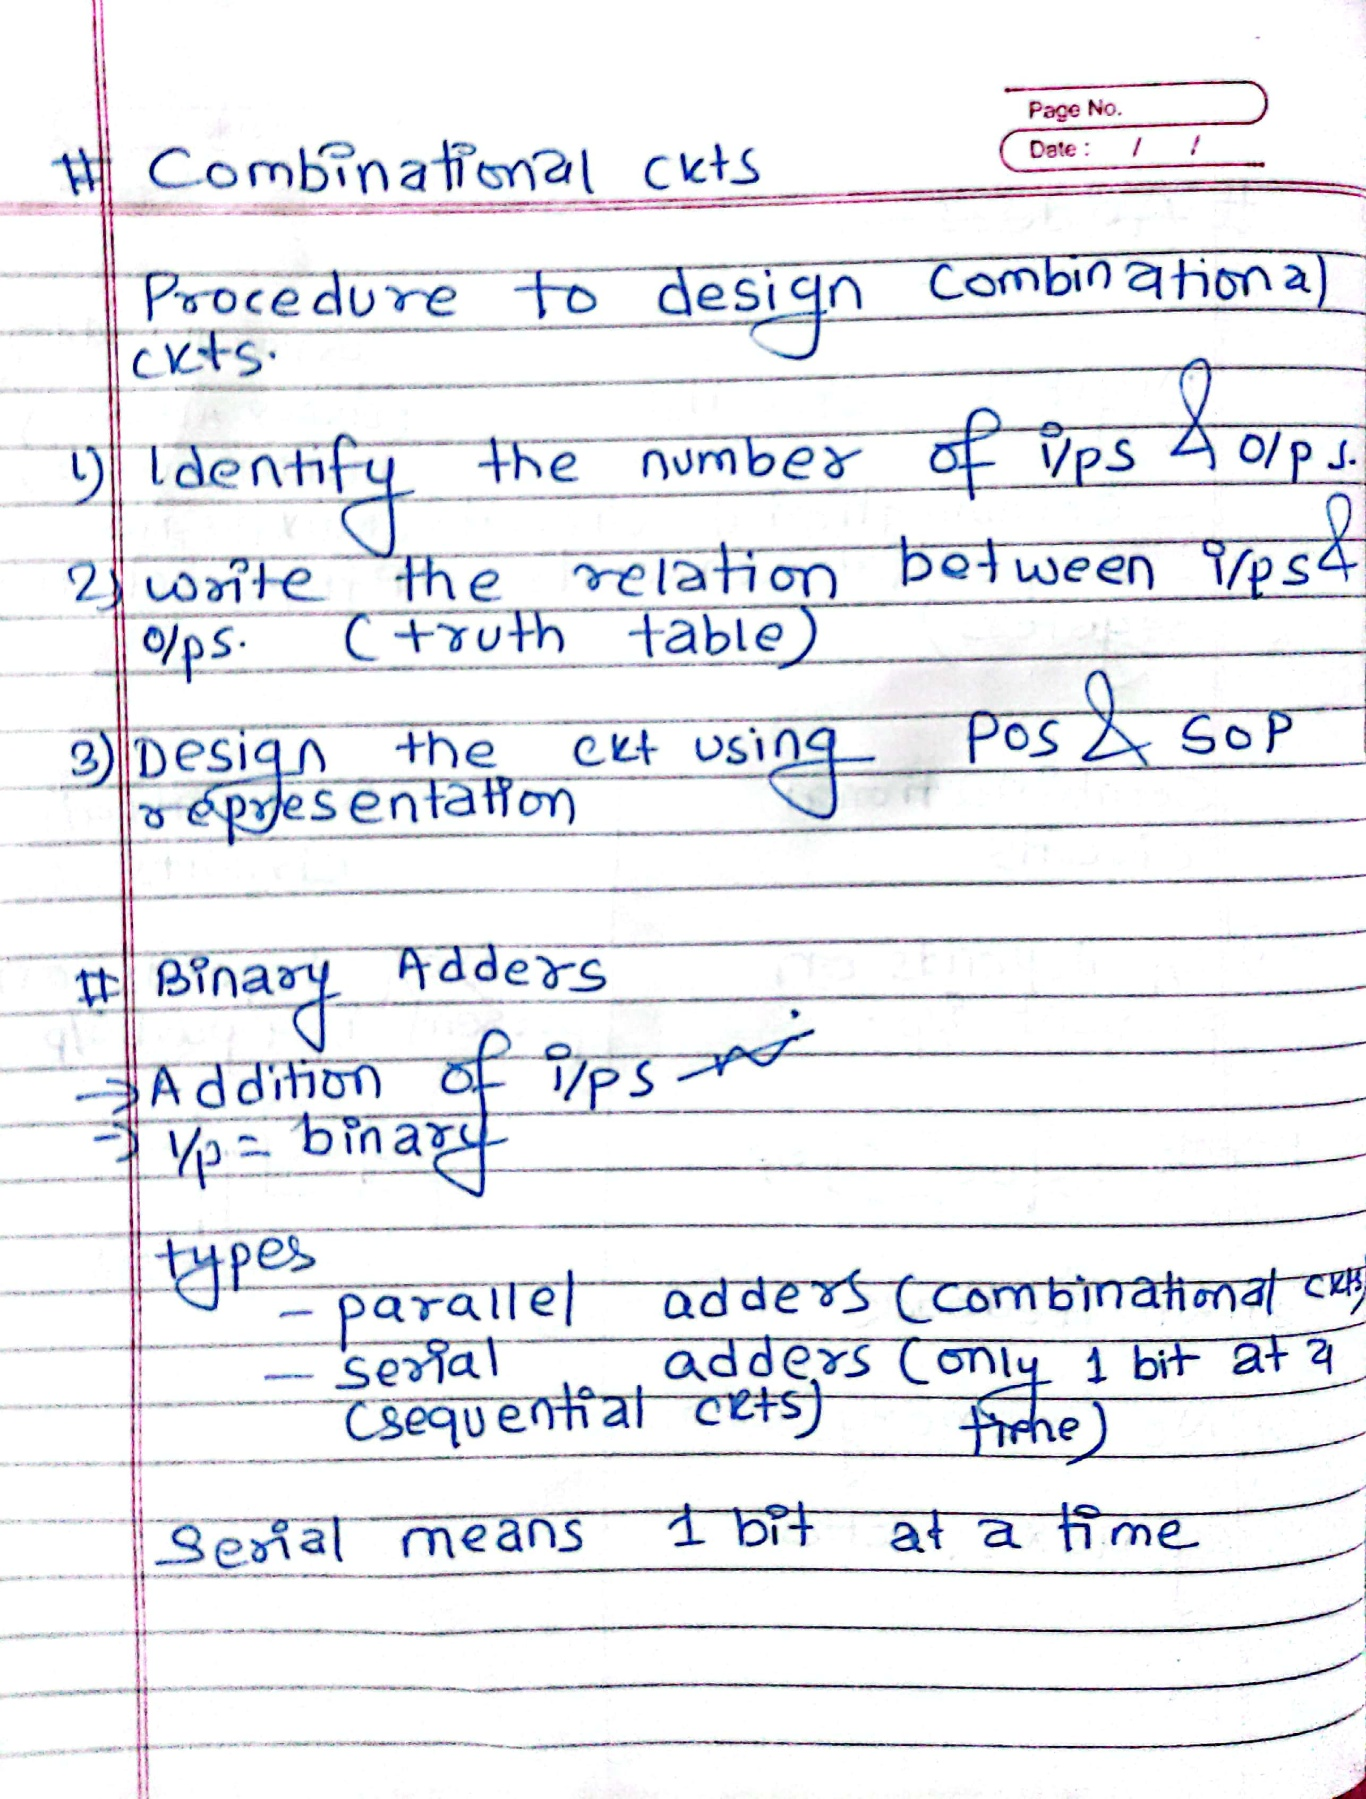 Page No.
Date : / /
# Combinational ckts
Procedure to design combinational
ckts.
1) Identify the number of i/ps & o/ps.
2) write the relation between i/ps &
o/ps. (truth table)
3) Design the ckt using POS & SOP
representation
# Binary Adders
→ Addition of i/ps
→ i/p = binary
types
- parallel adders (combinational ckts)
- serial adders (only 1 bit at a
(sequential ckts) time)
Serial means 1 bit at a time